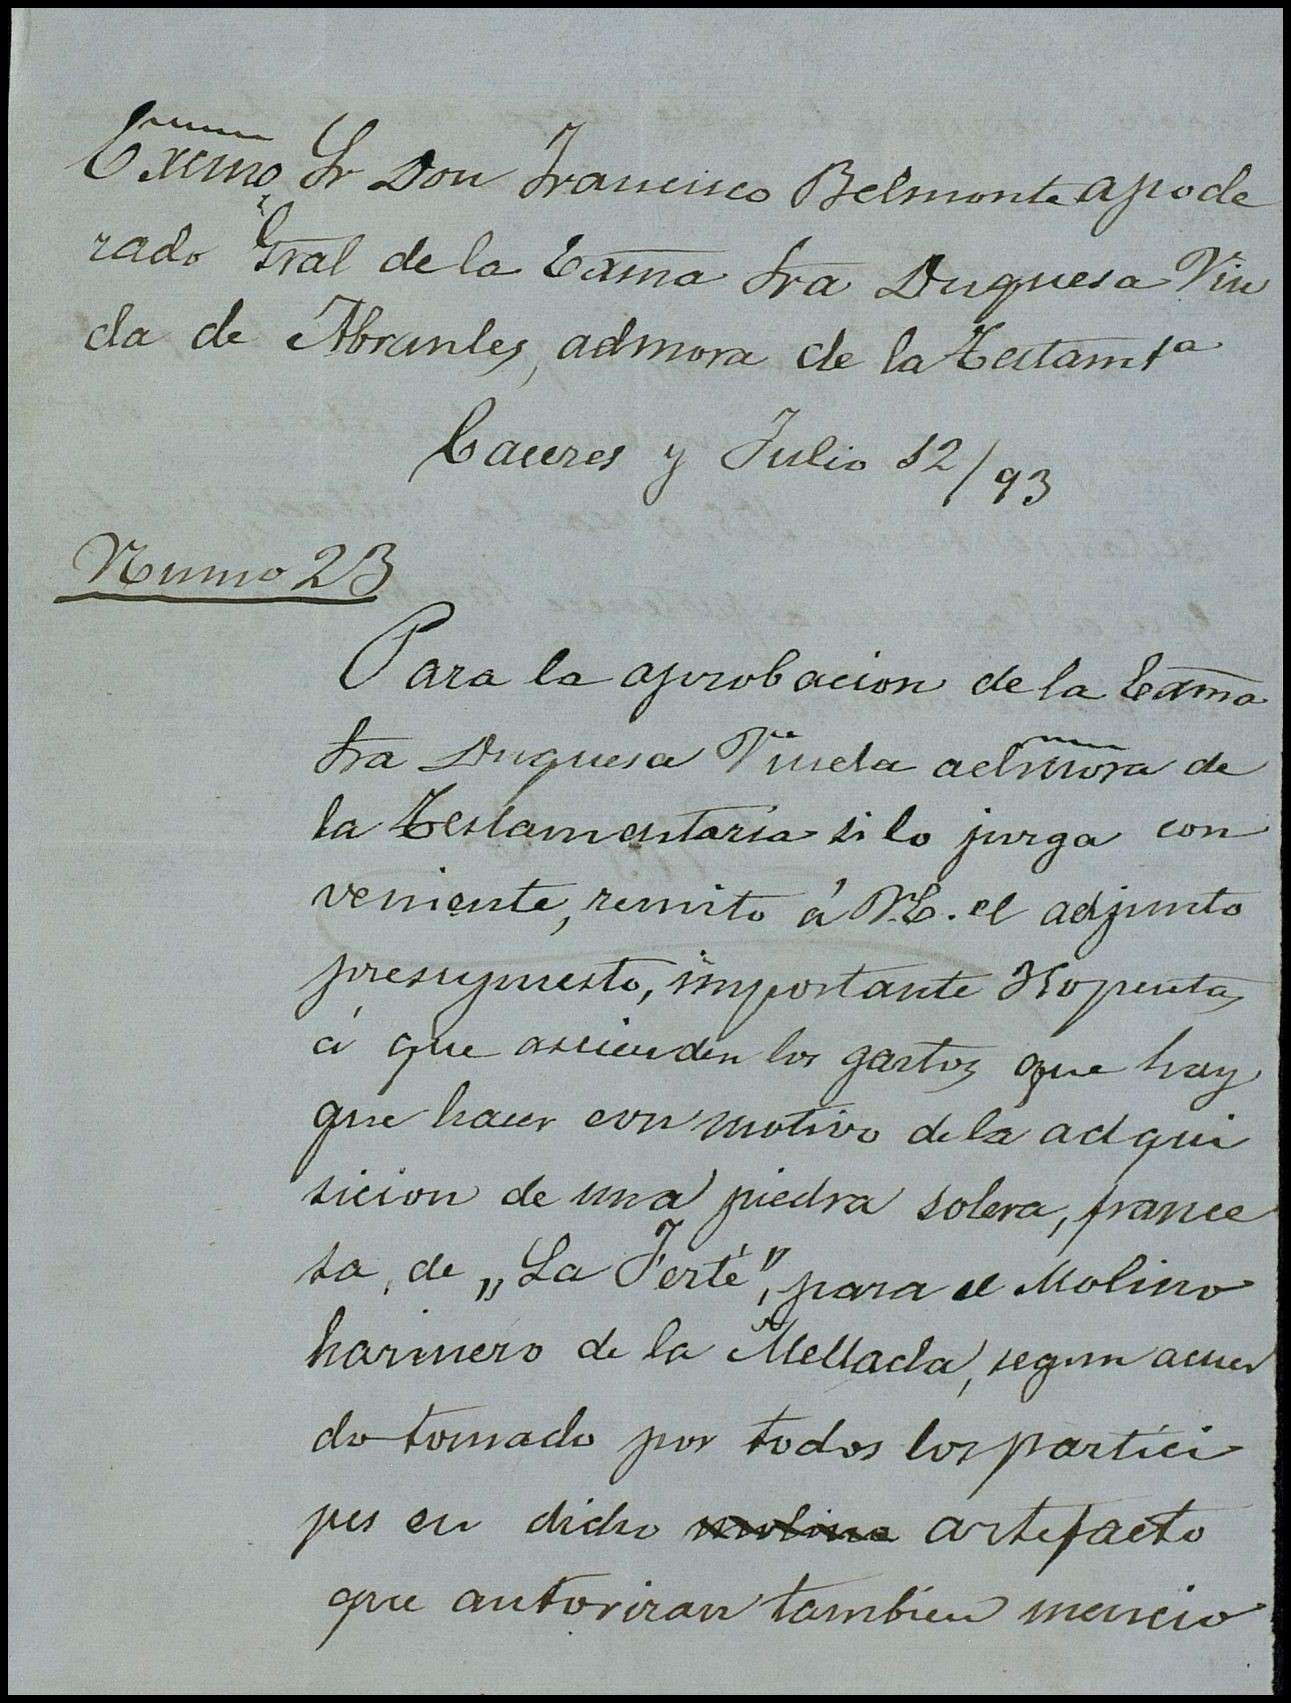 Exmo Sr Don Francisco Belmonte apode
rado Gral de la Exma Sra Duquesa Viu
da de Abrantes, admora de la Testamta
Caceres y Julio 12/93
Numo 23
Para la aprobacion de la Exma
Sra Duquesa Viuda admora de
la Testamentaria si lo jurga con
veniente, remito á V.E. el adjunto
presupuesto, importante pesetas
á que ascienden los gastos que hay
que hacer con motivo de la adqui
sicion de una piedra solera, france
sa, de „La Ferté", para el Molino
harinero de la Mellada, segun acuer
do tomado por todos los partici
pes en dicho molino artefacto
que autorizan tambien mencio